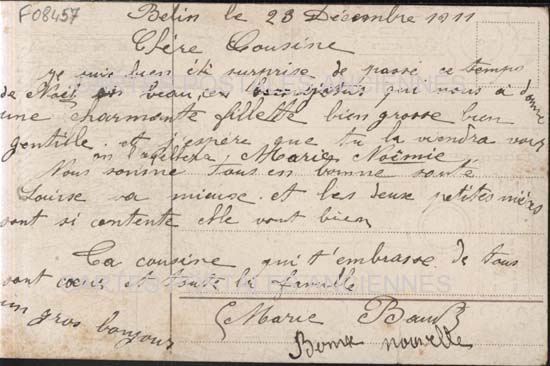 F08457
Belin le 23 Décembre 1911
Chère Cousine
je suis bien été surprise de passé ce temps
de Noël si beau, en qui nous a donné
une charmante fillette bien grosse bien
gentille. et j'espère que tu la viendra voir
on l'apellera, Marie Noëmie
Nous somme tous en bonne santé
Louise va mieuse. et les deux petites mères
sont si contente elle vont bien
Ta cousine qui t'embrasse de tous
sont cœur et toute la famille
un gros bonjour
Marie
Bonne nouvelle
CARTES POSTALES ANCIENNES
CARTES POSTALES ANCIENNES